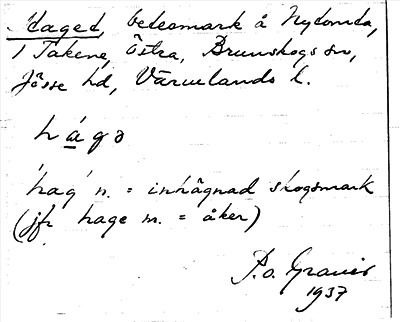 Haget, betesmark å Nytomta,
i Takene, Östra, Brunskogs sn,
Jösse hd, Värmlands l.
hágə
'hag' n. = inhägnad skogsmark
(jfr hage m. = åker)
P.o. Graner
1937